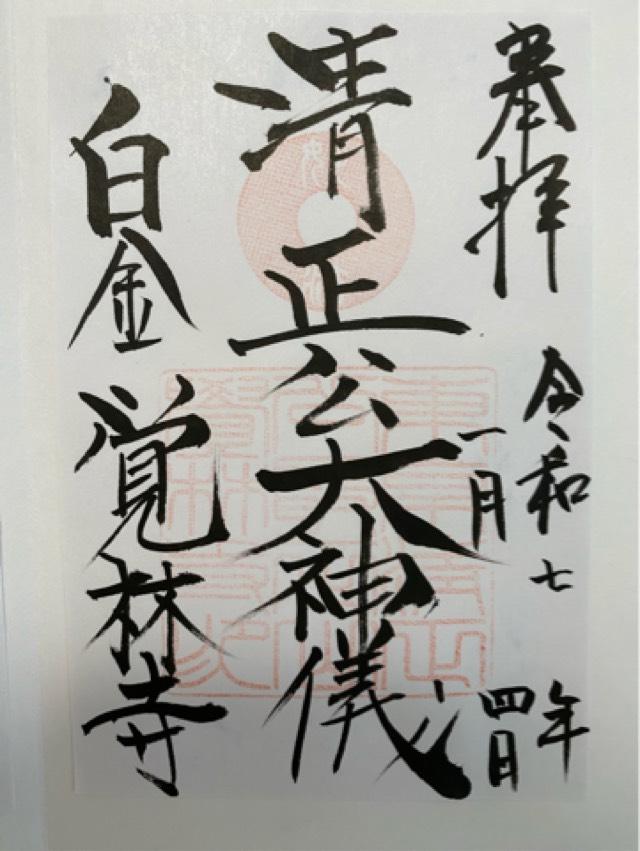 奉拝
令和七年
一月四日
清正公大神儀
白金覚林寺